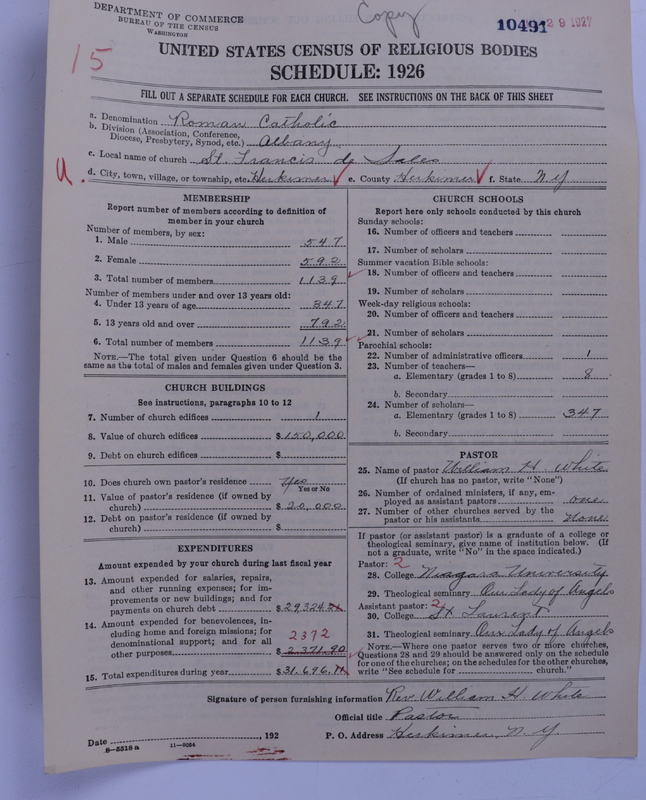 DEPARTMENT OF COMMERCE
BUREAU OF THE CENSUS
WASHINGTON
Copy
10491
29 1927
15
UNITED STATES CENSUS OF RELIGIOUS BODIES
SCHEDULE: 1926
FILL OUT A SEPARATE SCHEDULE FOR EACH CHURCH. SEE INSTRUCTIONS ON THE BACK OF THIS SHEET
a. Denomination Roman Catholic
b. Division (Association, Conference,
Diocese, Presbytery, Synod, etc.) Albany
c. Local name of church St. Francis de Sales
U. d. City, town, village, or township, etc. Herkimer e. County Herkimer f. State N.Y
MEMBERSHIP
Report number of members according to definition of
member in your church
Number of members, by sex:
1. Male 547
2. Female 592
3. Total number of members 1139
Number of members under and over 13 years old:
4. Under 13 years of age 347
5. 13 years old and over 792
6. Total number of members 1139
NOTE.—The total given under Question 6 should be
same as the total of males and females given under Question 3.
CHURCH BUILDINGS
See instructions, paragraphs 10 to 12
7. Number of church edifices 1
8. Value of church edifices $150,000
9. Debt on church edifices $
10. Does church own pastor's residence Yes
Yes or No
11. Value of pastor's residence (if owned by
church) $20,000
12. Debt on pastor's residence (if owned by
church) $
EXPENDITURES
Amount expended by your church during last fiscal year
13. Amount expended for salaries, repairs,
and other running expenses; for im-
provements or new buildings; and for
payments on church debt $29,324.
14. Amount expended for benevolences, in-
cluding home and foreign missions; for
denominational support; and for all
2372
other purposes $2,371.90
15. Total expenditures during year $31,696.
CHURCH SCHOOLS
Report here only schools conducted by this church
Sunday schools:
16. Number of officers and teachers
17. Number of scholars
Summer vacation Bible schools:
18. Number of officers and teachers
19. Number of scholars
Week-day religious schools:
20. Number of officers and teachers
21. Number of scholars
Parochial schools:
22. Number of administrative officers 1
23. Number of teachers—
a. Elementary (grades 1 to 8) 8
b. Secondary
24. Number of scholars—
a. Elementary (grades 1 to 8) 347
b. Secondary
PASTOR
25. Name of pastor William H. White
(If church has no pastor, write "None")
26. Number of ordained ministers, if any, em-
ployed as assistant pastors one
27. Number of other churches served by the
pastor or his assistants None
If pastor (or assistant pastor) is a graduate of a college or
theological seminary, give name of institution below. (If
not a graduate, write "No" in the space indicated.)
Pastor: 2
28. College Niagara University
29. Theological seminary Our Lady of Angels
Assistant pastor: 2
30. College St Laurent
31. Theological seminary Our Lady of Angels
NOTE.—Where one pastor serves two or more churches,
Questions 28 and 29 should be answered only on the schedule
for one of the churches; on the schedules for the other churches,
write "See schedule for church."
Signature of person furnishing information Rev. William H. White
Official title Pastor
Date , 192 P. O. Address Herkimer, N.Y
8-5518a 11-9054